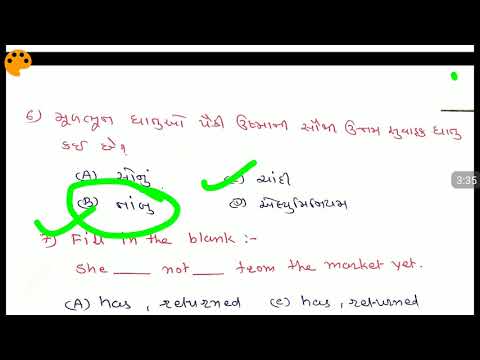 6) મૂળભૂત ધાતુઓ પૈકી ઉષ્માની સૌથી ઉત્તમ સુવાહક ધાતુ
કઈ છે ?
(A) સોનું (C) ચાંદી
(B) તાંબુ (D) એલ્યુમિનિયમ
7) Fill in the blank :-
She ___ not ___ from the market yet.
(A) has, returned (C) has, returned
3:35